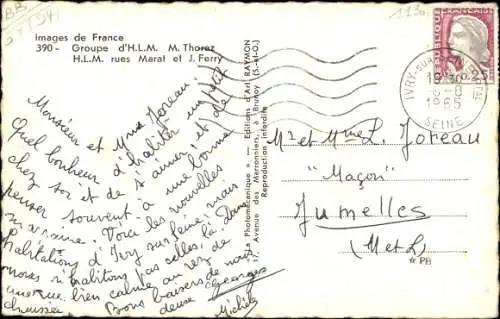 Images de France
390 - Groupe d'H.L.M. M. Thorez
H.L.M. rues Marat et J. Ferry
Monsieur et Mme Joreau.
Quel bonheur d'habiter un petit
chez soi et de s'aimer! et de
penser souvent à une bonne
marraine! Voici les nouvelles
habitations d'Ivry sur seine; mais
nous n'habitons pas celles là. Dans
une rue bien calme au rez de
chaussée. Bons baisers de nous
deux Georges
Michèle
"La Photomécanique" - Editions d'Art RAYMON
17, Avenue des Marronniers, à Brunoy (S.-&-O.)
Reproduction interdite
REPUBLIQUE FRANCAISE
0,25
IVRY-SUR-SEINE
1965
SEINE
Mr et Mme L. Joreau
"Maçon"
Jumelles
(M et L)
☆ PB